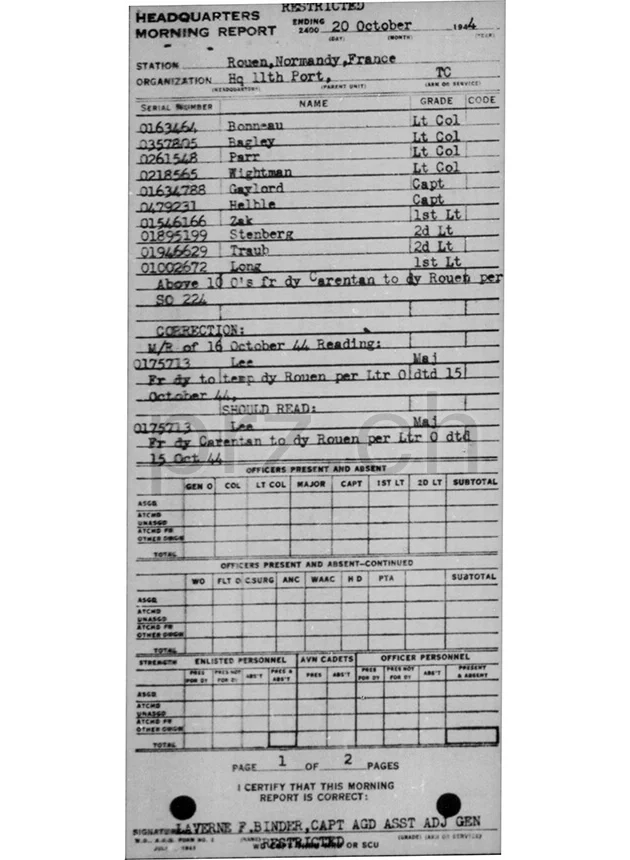 RESTRICTED
HEADQUARTERS
MORNING REPORT
ENDING 2400 20 October 1944
(DAY) (MONTH) (YEAR)
STATION Rouen,Normandy,France
ORGANIZATION Hq 11th Port, TC
(HEADQUARTERS) (PARENT UNIT) (ARM OR SERVICE)
SERIAL NUMBER NAME GRADE CODE
0163464 Bonneau Lt Col
0357805 Bagley Lt Col
0261548 Parr Lt Col
0218565 Wightman Lt Col
01634788 Gaylord Capt
0479231 Helble Capt
01546166 Zak 1st Lt
01895199 Stenberg 2d Lt
01946629 Traub 2d Lt
01002672 Long 1st Lt
Above 10 O's fr dy Carentan to dy Rouen per
SO 224
CORRECTION:
M/R of 16 October 44 Reading:
0175713 Lee Maj
Fr dy to temp dy Rouen per Ltr O dtd 15
October 44,
SHOULD READ:
0175713 Lee Maj
Fr dy Carentan to dy Rouen per Ltr O dtd
15 Oct 44
prz.ch
OFFICERS PRESENT AND ABSENT
GEN O COL LT COL MAJOR CAPT 1ST LT 2D LT SUBTOTAL
ASGD
ATCHD
UNASGD
ATCHD FR
OTHER ORGN
TOTAL
OFFICERS PRESENT AND ABSENT—CONTINUED
WO FLT O C SURG ANC WAAC H D PTA SUBTOTAL
ASGD
ATCHD
UNASGD
ATCHD FR
OTHER ORGN
TOTAL
STRENGTH ENLISTED PERSONNEL AVN CADETS OFFICER PERSONNEL
PRES FOR DY PRES NOT FOR DY ABS'T PRES & ABS'T PRES ABS'T PRES FOR DY PRES NOT FOR DY ABS'T PRESENT & ABSENT
ASGD
ATCHD
UNASGD
ATCHD FR
OTHER ORGN
TOTAL
PAGE 1 OF 2 PAGES
I CERTIFY THAT THIS MORNING
REPORT IS CORRECT:
SIGNATURE LAVERNE F.BINDER,CAPT AGD ASST ADJ GEN
(NAME) (GRADE) (ARM OR SERVICE)
W.D., A.G.O. FORM NO. 2
JULY 1943
RESTRICTED
OR SCU